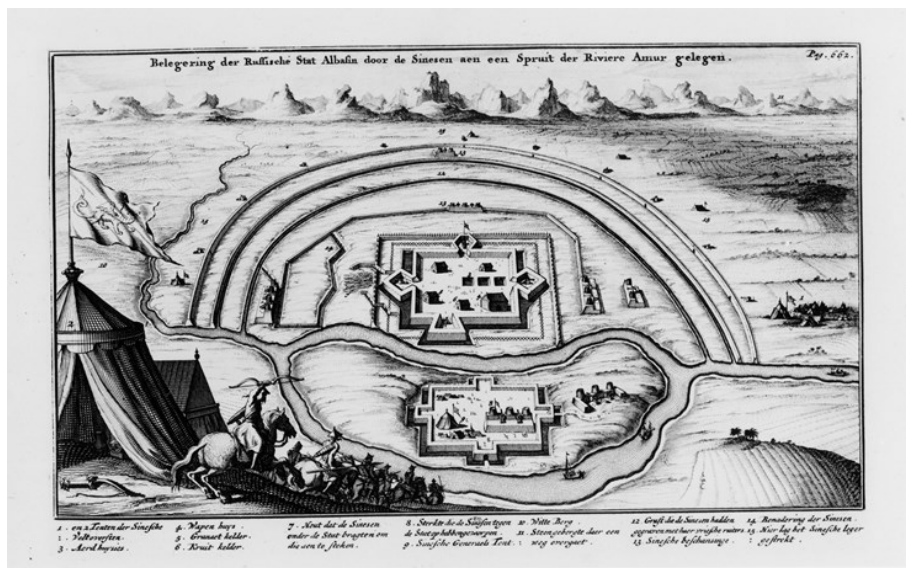 Belegering der Russische Stat Albasin door de Sinesen aen een Spruit der Riviere Amur gelegen.
Pag. 662.
1. en 2 Tenten der Sinesche
: Veltoversten
3. Aerd huysies
4. Wapen huys.
5. Granaet kelder.
6. Kruit kelder.
7. Hout dat de Sinesen
onder de Stat bragten om
die aen te steken.
8. Sterkte die de Sinesen tegen
de Stat op hebben geworpen.
9. Sinesche Generaels Tent.
10. Witte Berg.
11. Steen gebergte daer een
: weg over gaet
12. Graft die de Sinesen hadden
13 Sinesche beschansinge.
14. Benadering der Sinesen.
15 Hier lag het Sinesche leger
: gestrekt.